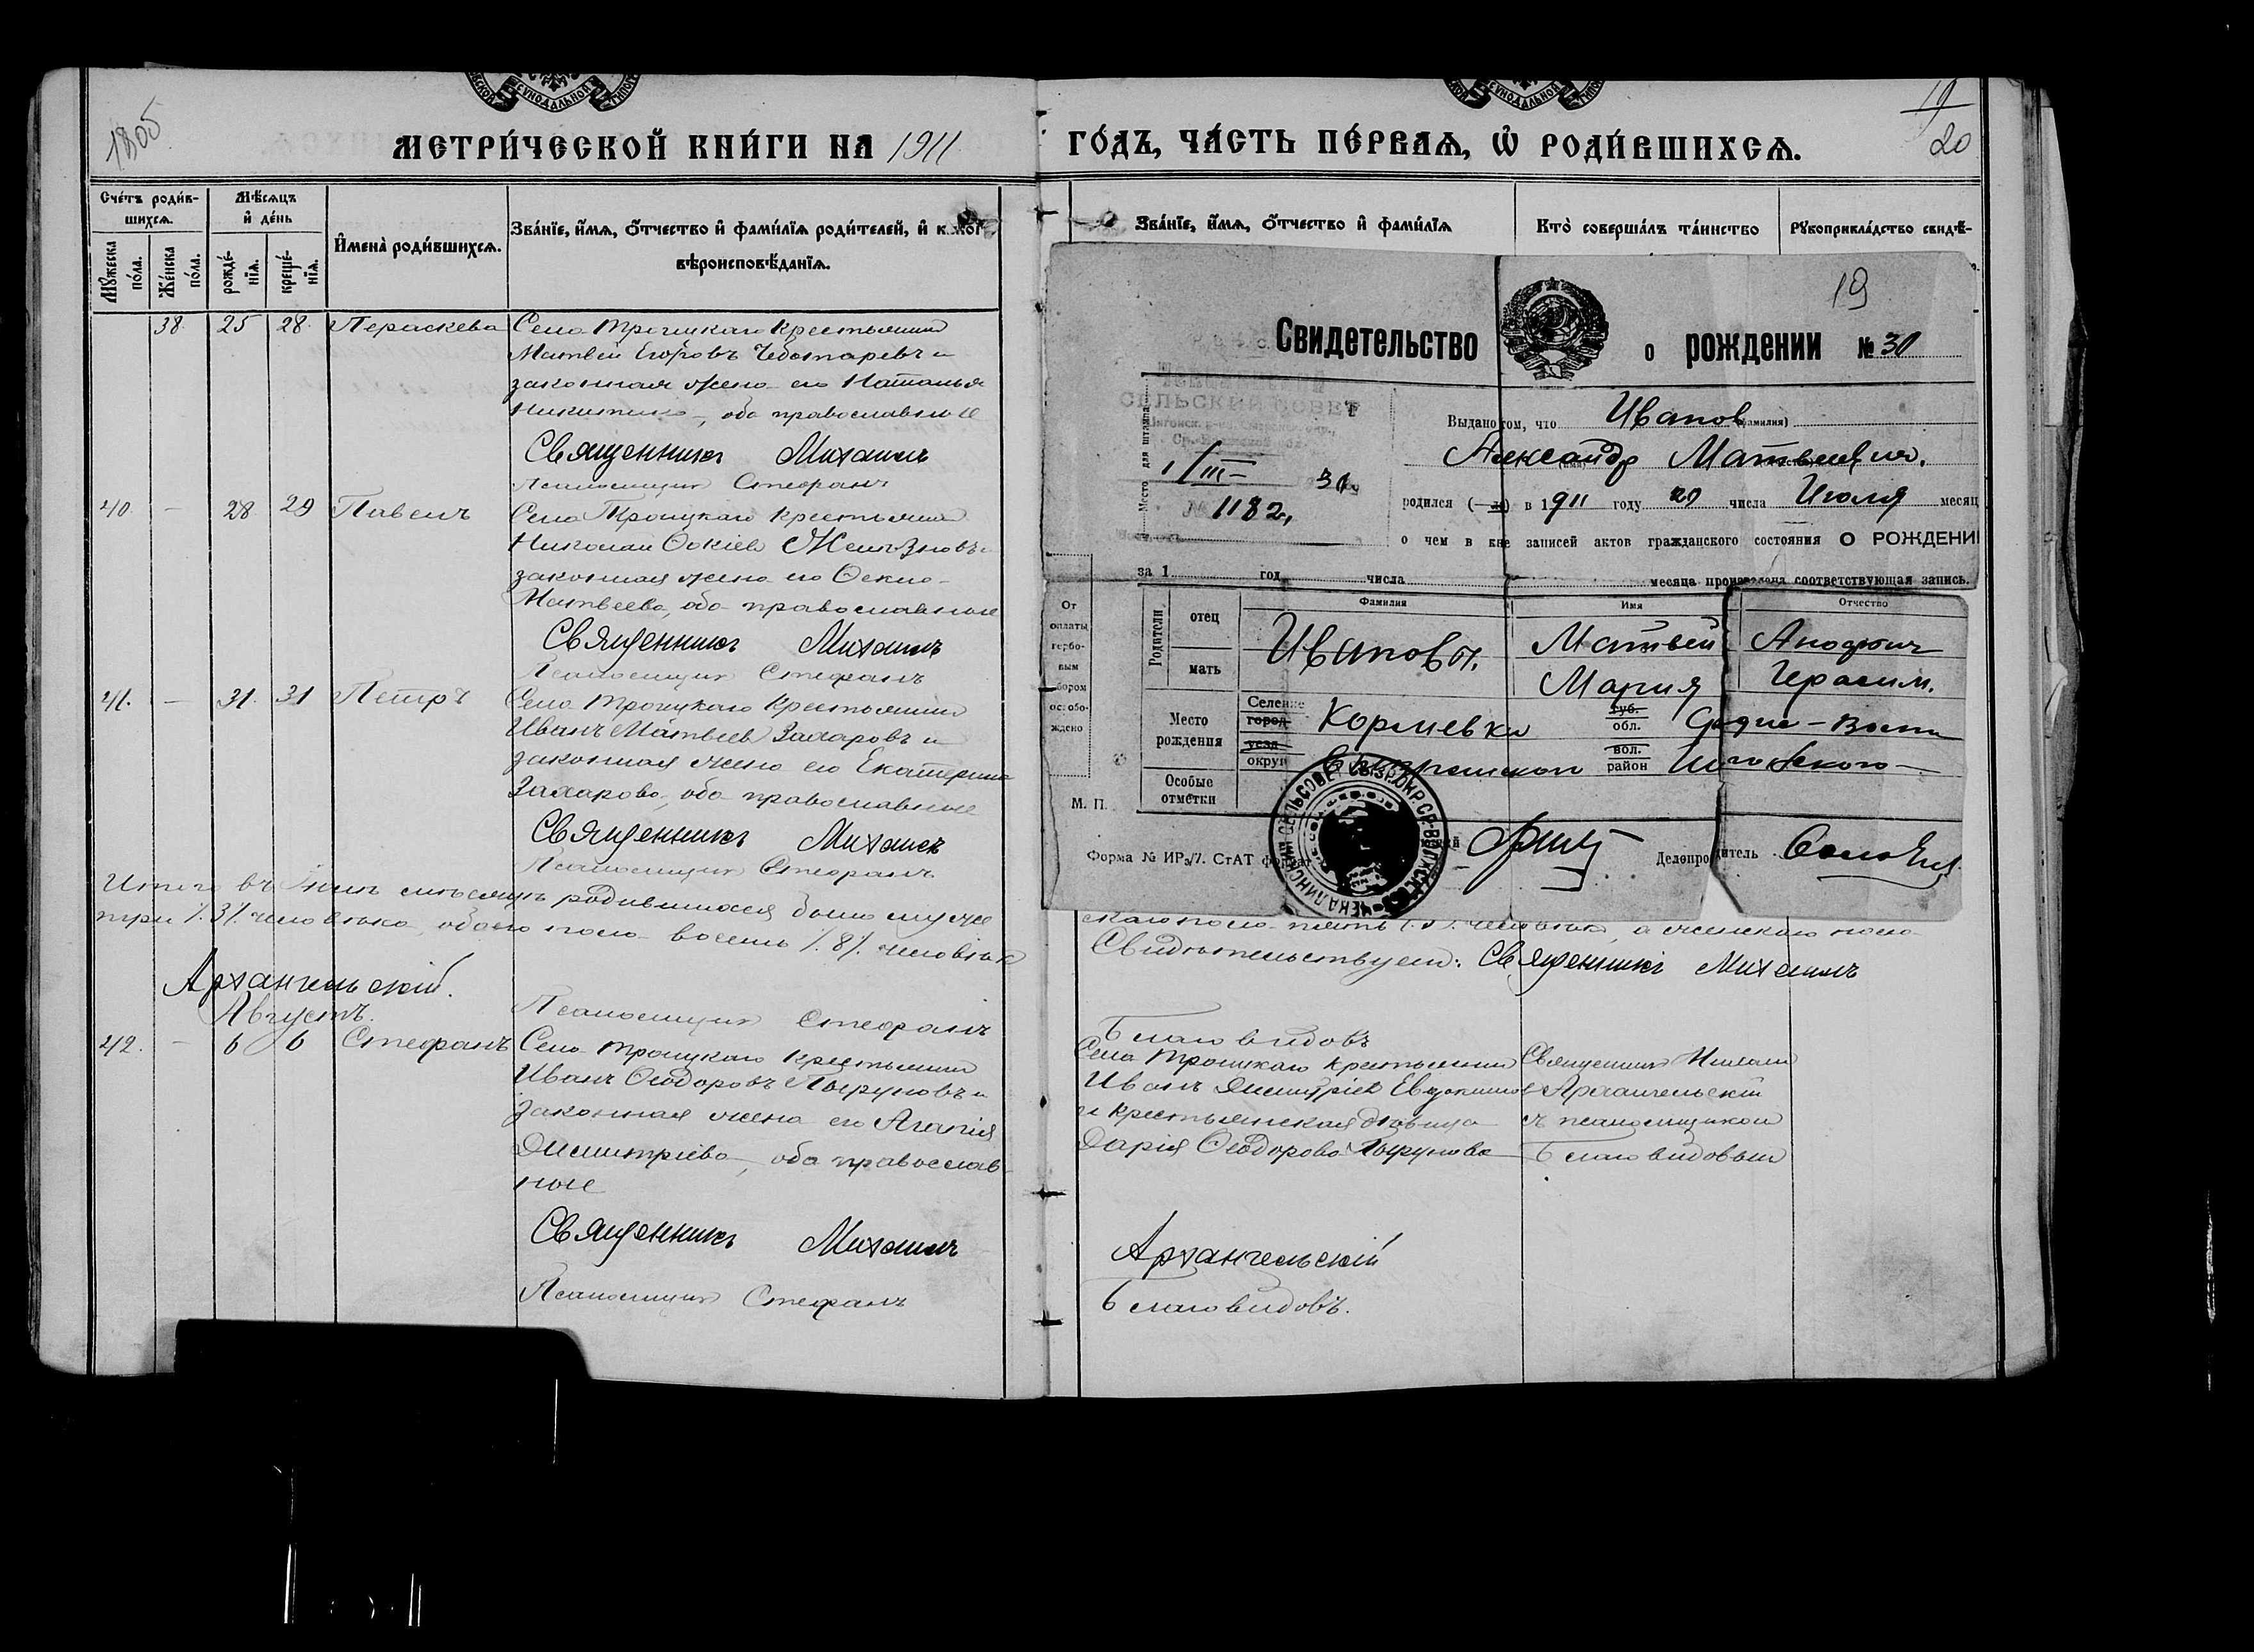 1805
МЕТРИ́ЧЕСКОЙ КНИ́ГИ НА 1911
Сче́тъ роди́в-
шихсѧ.
Мѣ́сѧцъ
и҆ де́нь
Мꙋ́жеска
по́ла.
Же́нска
по́ла.
рожде́-
нїѧ.
креще́-
нїѧ.
И҆мена̀ роди́вшихсѧ.
Зва́нїе, и҆́мѧ, ѻ҆́тчество и҆ фами́лїѧ роди́телей, и҆ како́гѡ
вѣроисповѣ́данїѧ.
38. 25 28. Параскева Села Троицкаго крестьянинъ
Матвей Егоровъ Чеботаревъ и
законная жена его Наталья
Никитина, оба православные
Священникъ Михаилъ
Псаломщикъ Стефанъ
40. - 28 29 Павелъ Села Троицкаго крестьянинъ
Николай Фокіевъ
законная жена его Фекла
Матвеева, оба православные
Священникъ Михаилъ
Псаломщикъ Стефанъ
41. - 31. 31 Петръ Села Троицкаго крестьянинъ
Иванъ Матвеевъ Захаровъ и
законная жена его Екатерина
Захарова, оба православные
Священникъ Михаилъ
Псаломщикъ Стефанъ
Итого въ Іюлѣ мѣсяцѣ родившихся было муже
три /.3/. человѣка, обоего пола восемь /.8/. человѣкъ
Архангельскій.
Псаломщикъ Стефанъ
Августъ.
42. - 6 6 Стефанъ Села Троицкаго крестьянинъ
Иванъ Ѳеодоровъ и
законная жена его Агапія
Димитріева, оба православ-
ные
Священникъ Михаилъ
Псаломщикъ Стефанъ
ГО́ДЪ, ЧА́СТЬ ПЕ́РВАѦ, Ѡ҆ РОДИ́ВШИХСѦ.
19
20
Зва́нїе, и҆́мѧ, ѻ҆́тчество и҆ фами́лїѧ
Кто̀ соверша́лъ та́инство
Рꙋкоприкла́дство свидѣ́-
19
Свидетельство о рождении № 30
СЕЛЬСКИЙ СОВЕТ
Место для штампа
1/III- 30
№ 1182,
Выдано том, что Иванов (фамилия)
Александр Матвеевич.
родился (—) в 1911 году 20 числа Июля месяц
о чем в кне записей актов гражданского состояния О РОЖДЕНИ
за 1 год числа месяца произведена соответствующая запись.
От
оплаты
гербо-
вым
сбором
освобо-
ждено
Родители
отец
мать
Фамилия Имя Отчество
Ивановы. Матвей
Мария Герасим.
Место
рождения
Селение
город
Кормиевка
губ.
обл.
Средне-Волж
уезд
округ
вол.
район
Особые
отметки
М. П.
ЧЕКАЛИНСКИЙ СЕЛЬСОВЕТ СЫЗР. ОКР. СР.-ВОЛЖСК
Форма № ИРз/7. СтАТ формат
Делопроизводитель
скаго пола пять /.5/. человѣкъ, а женскаго пола
Свидѣтельствуемъ: Священникъ Михаилъ
Благовидовъ
Села Троицкаго крестьянинъ
Иванъ Димитріевъ
и крестьянская дѣвица
Дарія Ѳеодорова
Священникъ Михаилъ
Архангельскій
съ псаломщикомъ
Благовидовымъ
Архангельскій
Благовидовъ.